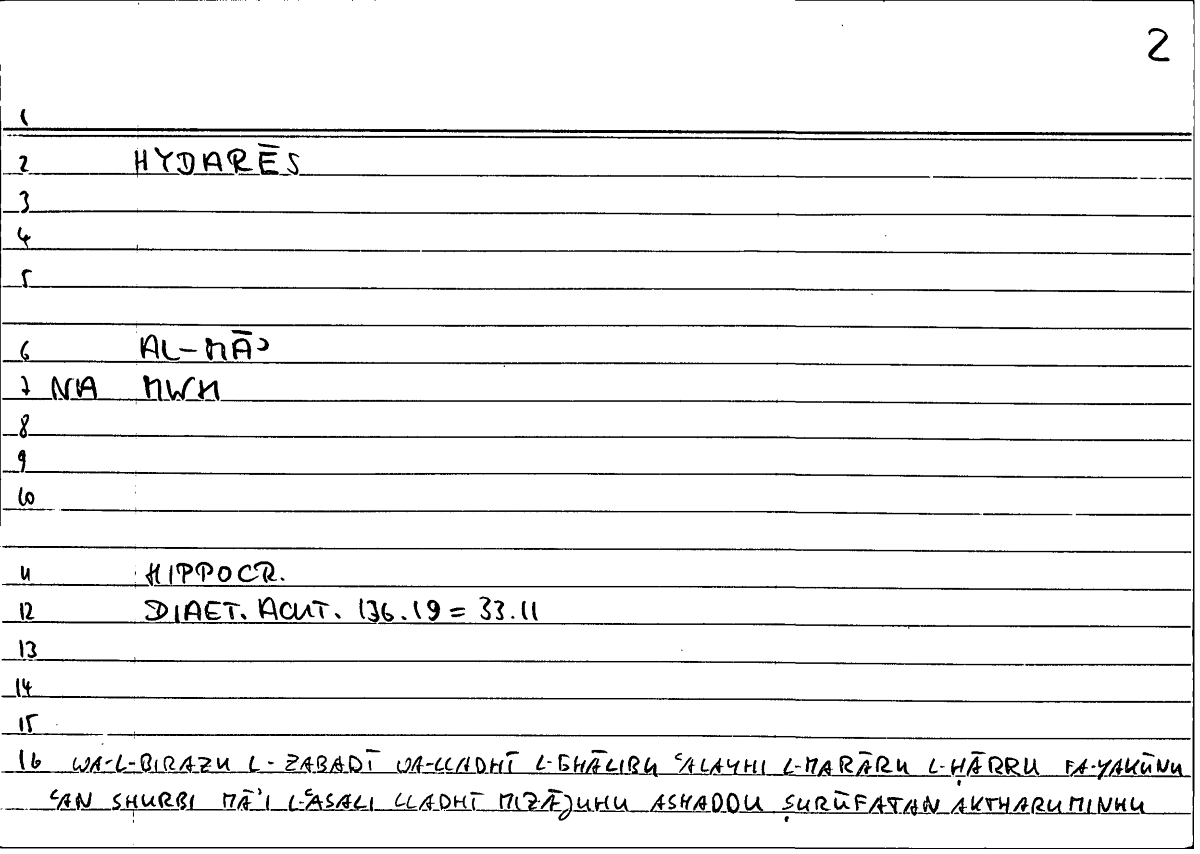 2
1
2 HYDARĒS
3
4
5
6 AL-MĀʾ
7 NA MWH
8
9
10
11 HIPPOCR.
12 DIAET. ACUT. 136.19 = 33.11
13
14
15
16 WA-L-BIRAZU L-ZABADĪ WA-LLADHĪ L-GHĀLIBU ʿALAYHI L-MARĀRU L-ḤĀRRU FA-YAKŪNU
ʿAN SHURBI MĀʾI L-ʿASALI LLADHĪ MIZĀJUHU ASHADDU ṢURŪFATAN AKTHARU MINHU